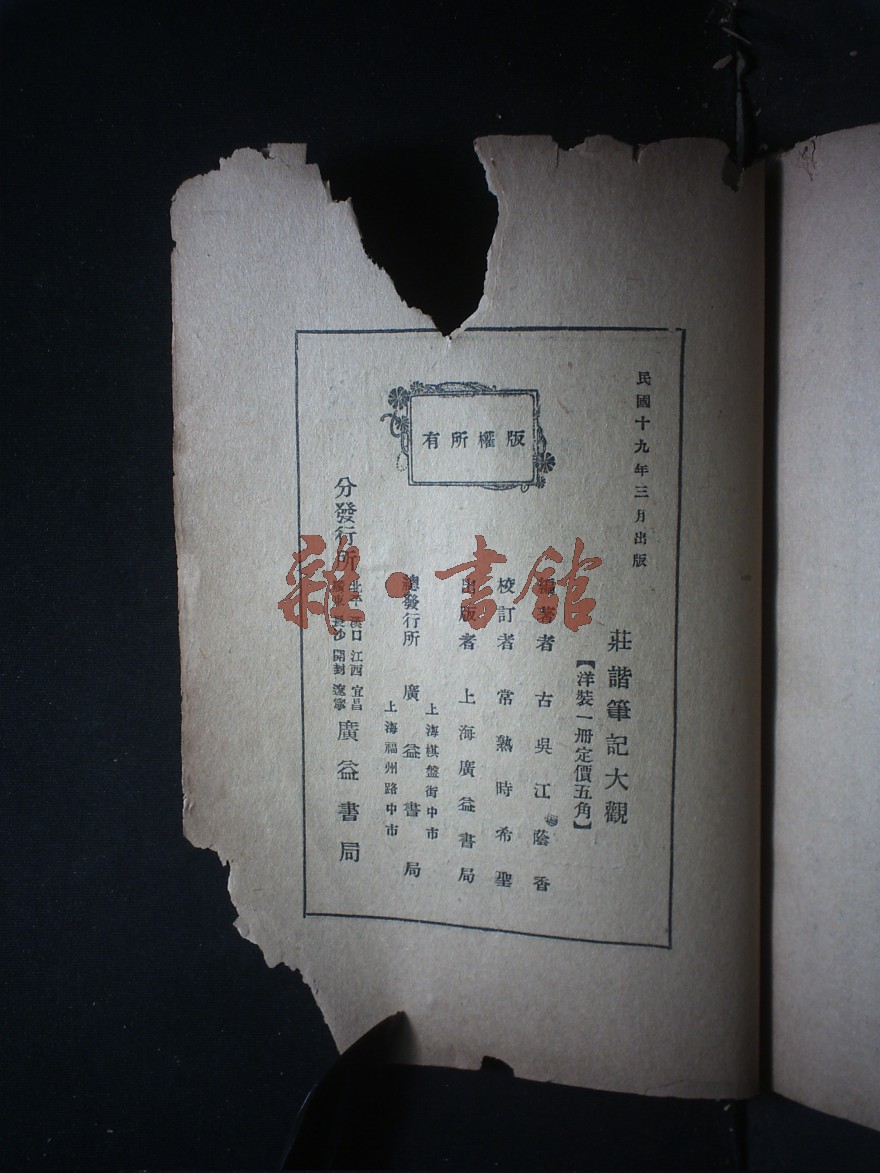 民國十九年三月出版
莊諧筆記大觀
【洋裝一冊定價五角】
編著者 古吳江蔭香
校訂者 常熟時希聖
出版者 上海廣益書局
上海棋盤街中市
總發行所 廣益書局
上海福州路中市
版權所有
分發行所
北平 漢口 江西 宜昌
廣東 長沙 開封 遼寧
廣益書局
雜·書館